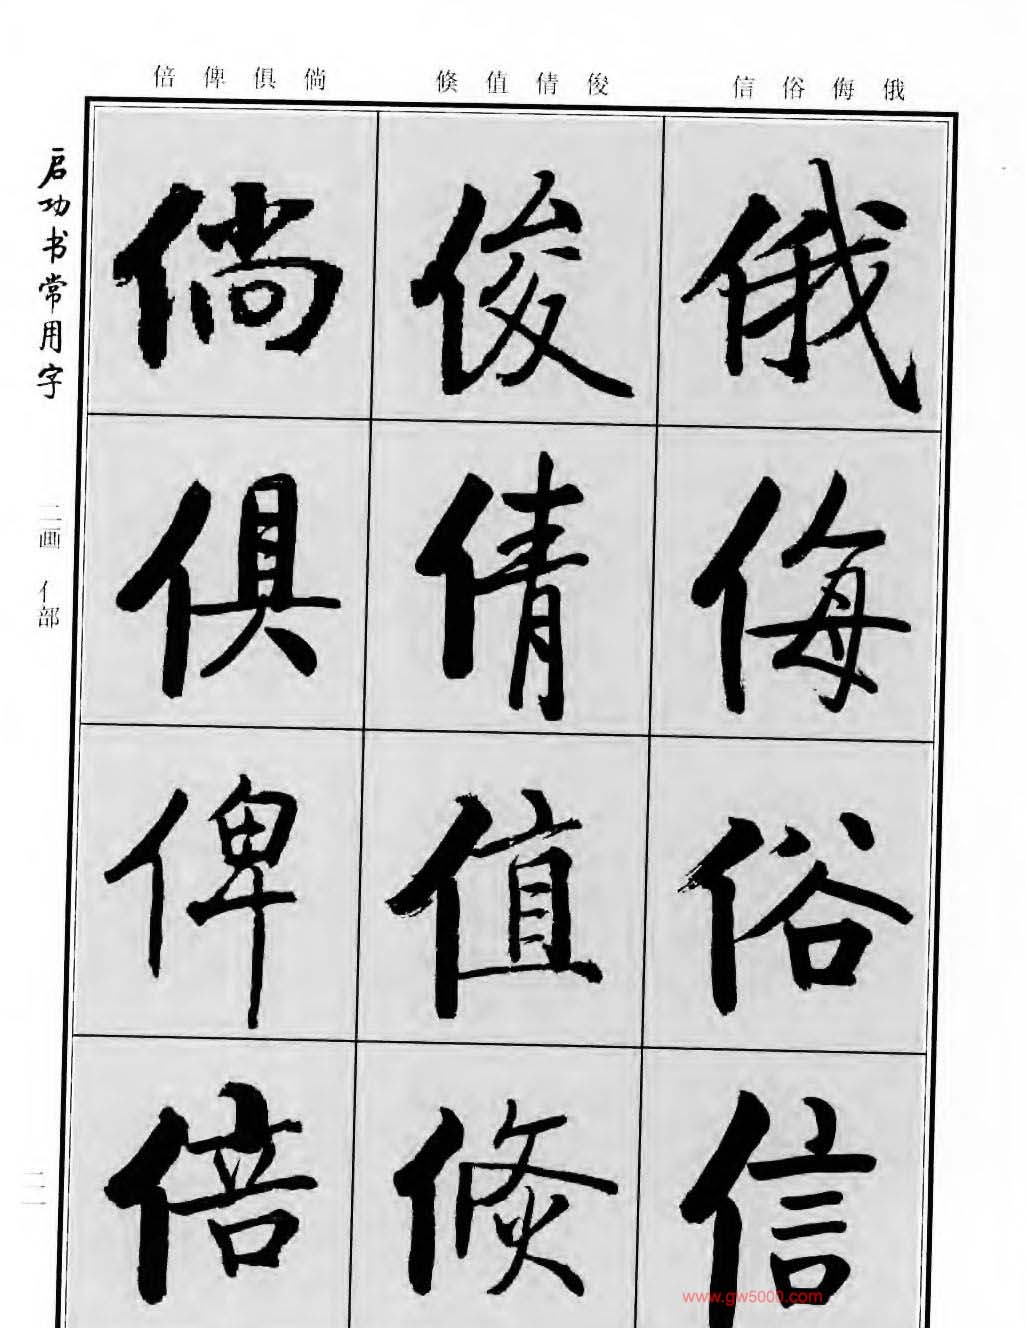 俄侮俗信
俊倩值倐
倘俱俾倍
俄
侮
俗
信
俊
倩
值
倐
倘
俱
俾
倍
启功书常用字
二画 亻部
www.gw5000.com